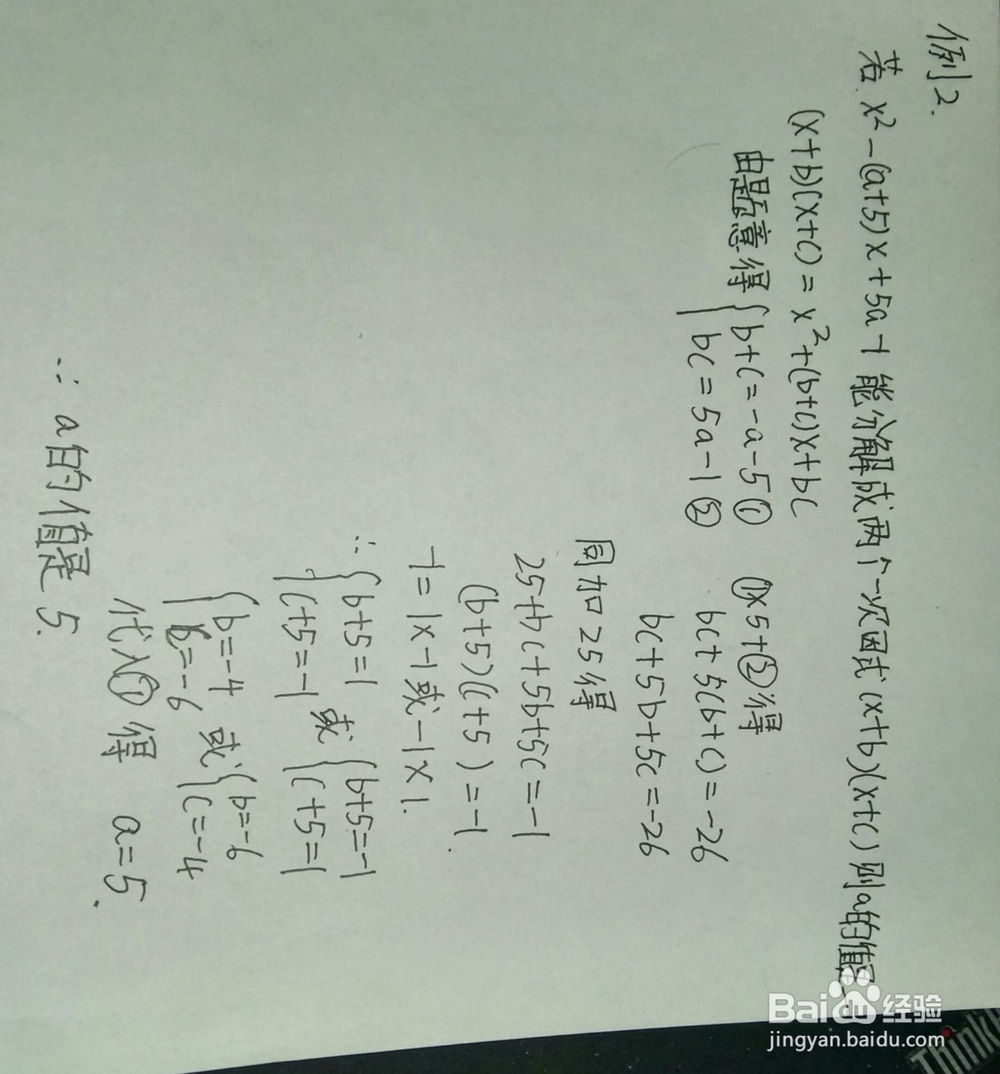 例2.
若 x²-(a+5)x+5a-1 能分解成两个一次因式 (x+b)(x+c) 则a的值是_
(x+b)(x+c) = x²+(b+c)x+bc
由题意得 { b+c=-a-5 ①
bc=5a-1 ②
①×5+②得
bc+5(b+c)=-26
bc+5b+5c=-26
同加25得
25+bc+5b+5c=-1
(b+5)(c+5)=-1.
-1=1×-1或-1×1.
∴ { b+5=1
c+5=-1 或 { b+5=-1
c+5=1
{ b=-4
c=-6 或 { b=-6
c=-4
代入①得 a=5.
∴ a的值是5.
Baidu经验
jingyan.baidu.com